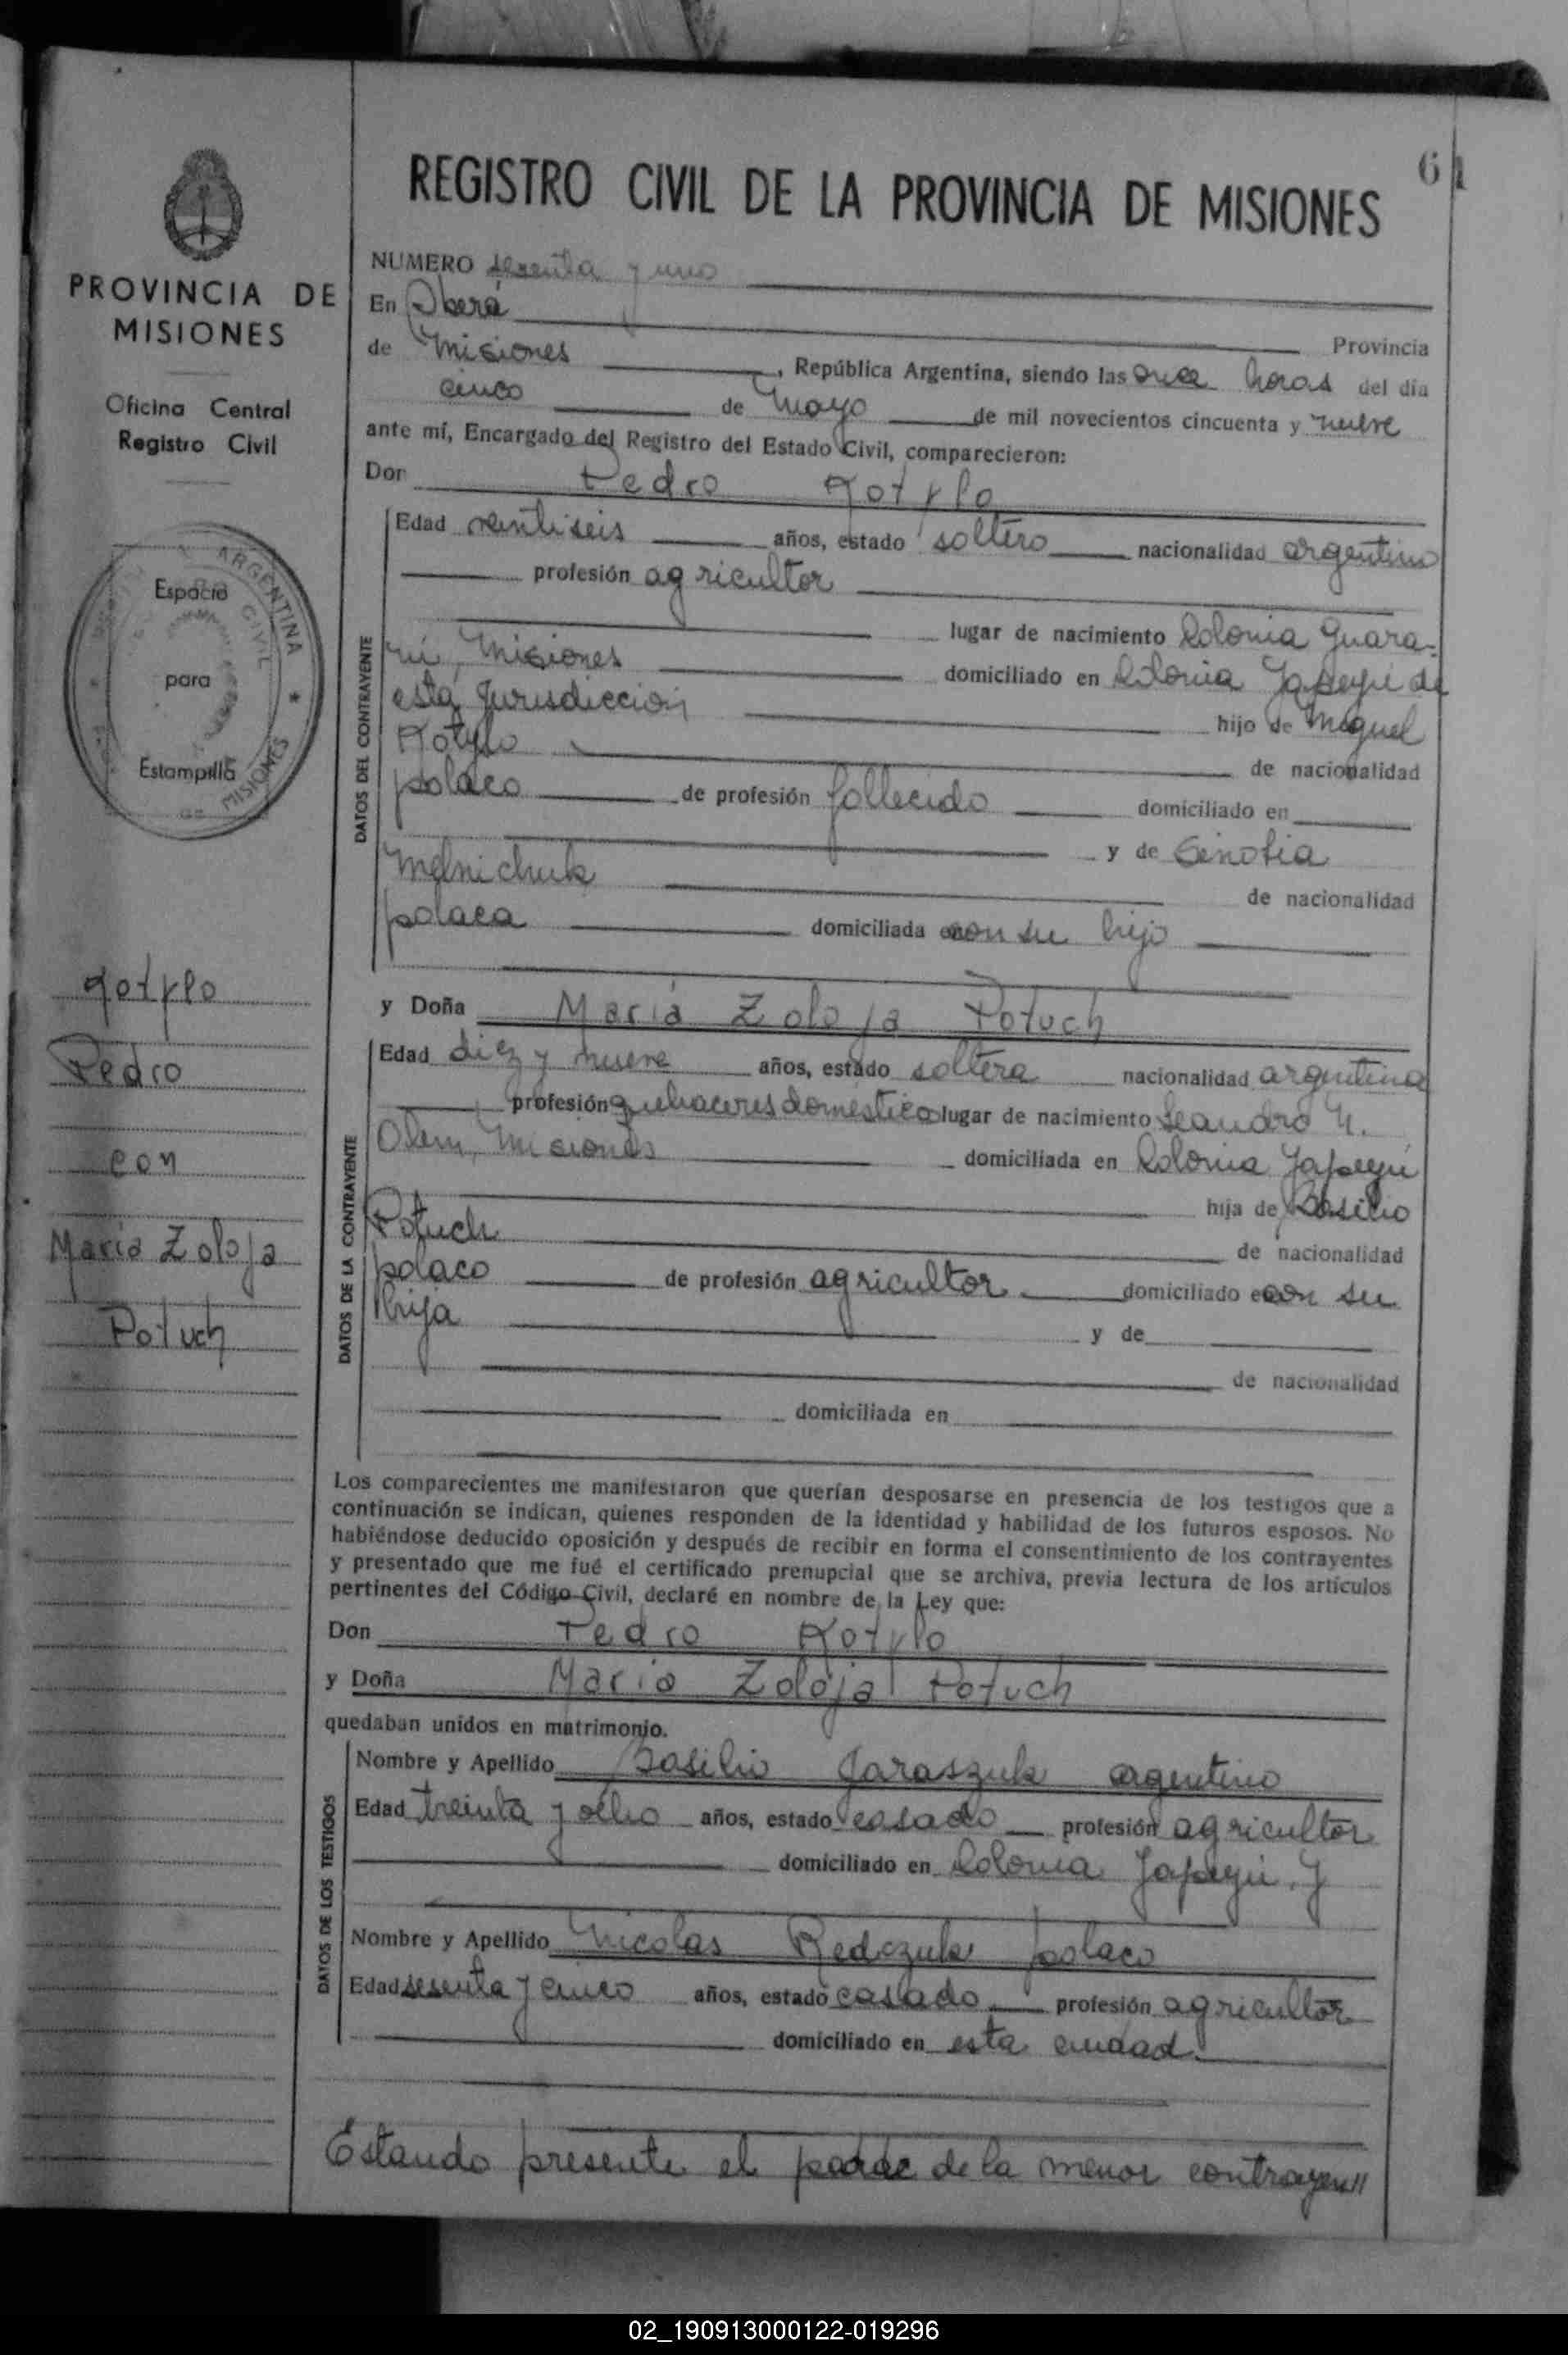 61
REGISTRO CIVIL DE LA PROVINCIA DE MISIONES
PROVINCIA DE
MISIONES
Oficina Central
Registro Civil
ARGENTINA
CIVIL
MISIONES
Espacio
para
Estampilla
Kotylo
Pedro
con
Maria Zoloja
Potuch
NUMERO sesenta y uno
En Oberá
Provincia
de Misiones, República Argentina, siendo las once horas del día
cinco de Mayo de mil novecientos cincuenta y nueve
ante mí, Encargado del Registro del Estado Civil, comparecieron:
Don Pedro Kotylo
DATOS DEL CONTRAYENTE
Edad veintiseis años, estado soltero nacionalidad argentino
profesión agricultor
lugar de nacimiento Colonia Guara-
ní, Misiones domiciliado en Colonia Yapeyú de
esta Jurisdicción hijo de Miguel
Kotylo de nacionalidad
polaco de profesión fallecido domiciliado en
y de Cenofia
Melnichuk de nacionalidad
polaca domiciliada con su hijo
y Doña Maria Zoloja Potuch
DATOS DE LA CONTRAYENTE
Edad diez y nueve años, estado soltera nacionalidad argentina
profesión quehaceres domestico lugar de nacimiento Leandro N.
Alem, Misiones domiciliada en Colonia Yapeyú
hija de Basilio
Potuch de nacionalidad
polaco de profesión agricultor domiciliado con su
hija y de
de nacionalidad
domiciliada en
Los comparecientes me manifestaron que querían desposarse en presencia de los testigos que a
continuación se indican, quienes responden de la identidad y habilidad de los futuros esposos. No
habiéndose deducido oposición y después de recibir en forma el consentimiento de los contrayentes
y presentado que me fué el certificado prenupcial que se archiva, previa lectura de los artículos
pertinentes del Código Civil, declaré en nombre de la Ley que:
Don Pedro Kotylo
y Doña Maria Zoloja Potuch
quedaban unidos en matrimonio.
DATOS DE LOS TESTIGOS
Nombre y Apellido Basilio Jaraszuk argentino
Edad treinta y ocho años, estado casado profesión agricultor
domiciliado en Colonia Yapeyú. y
Nombre y Apellido Nicolas Redczuk polaco
Edad sesenta y cinco años, estado casado profesión agricultor
domiciliado en esta ciudad.
Estando presente el padre de la menor contrayen//
02_190913000122-019296